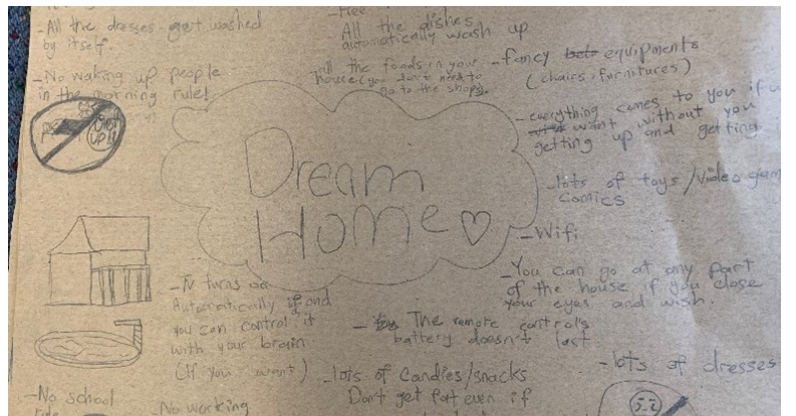 -All the dresses get washed
by itself.
-Free
-All the dishes
automatically wash up
-No waking up people
in the morning rule!
all the foods in your
house (you don't need to
go to the shops.
-fancy equipments
(chairs, furnitures)
GET
UP!!
-everything comes to you if u
want without you
getting up and getting
Dream
Home
-lots of toys/video gam
comics
-Wifi
-You can go at any part
of the house if you close
your eyes and wish.
-Tv turns on
Automatically and
you can control it
with your brain
(If you want)
-The remote control's
battery doesn't last
-lots of dresses
-lots of candies/snacks
Don't get fat even if
-No school
rule
No working